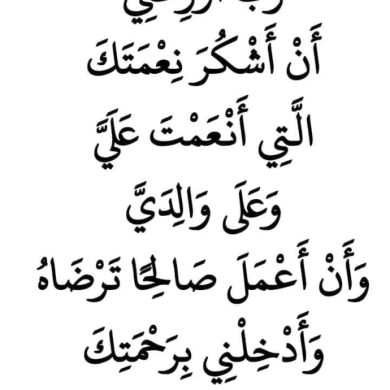 رَبِّ أَوْزِعْنِي
أَنْ أَشْكُرَ نِعْمَتَكَ
الَّتِي أَنْعَمْتَ عَلَيَّ
وَعَلَى وَالِدَيَّ
وَأَنْ أَعْمَلَ صَالِحًا تَرْضَاهُ
وَأَدْخِلْنِي بِرَحْمَتِكَ